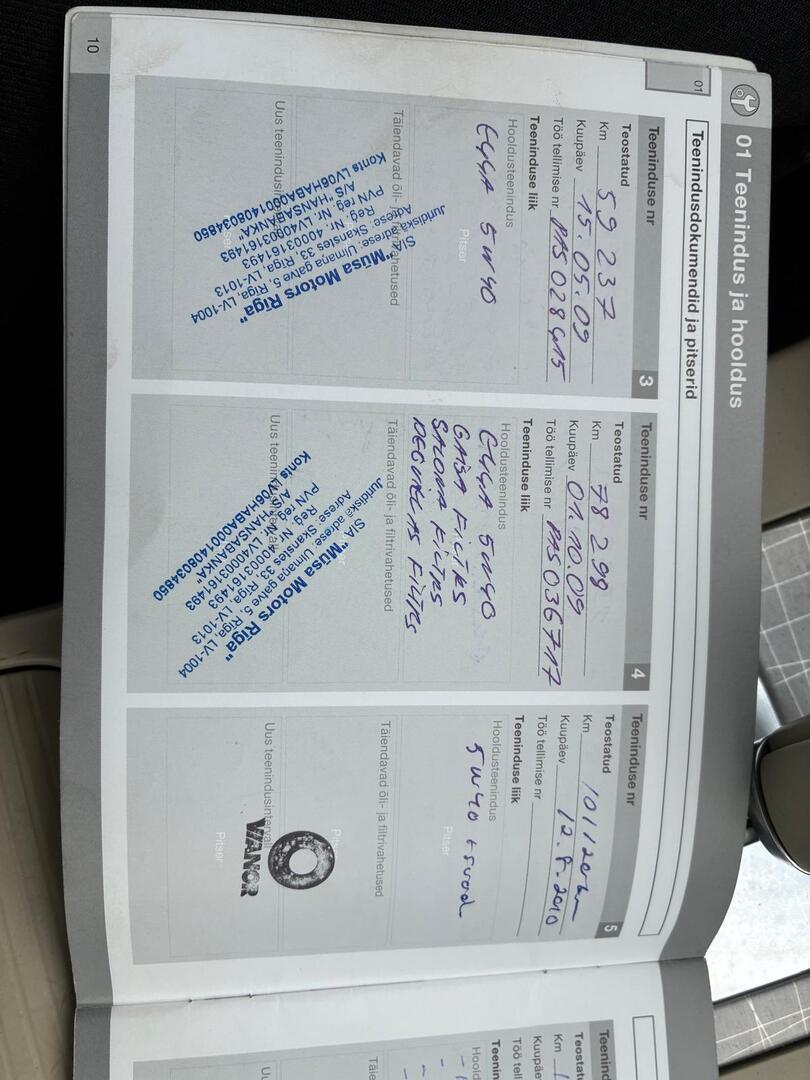 01 Teenindus ja hooldus
01
Teenindusdokumendid ja pitserid
Teeninduse nr 3
Teostatud
Km 59 237
Kuupäev 15.05.09
Töö tellimise nr PAS 028415
Teeninduse liik
Hooldusteenindus
EĻĻA 5W40
Pitser
Täiendavad õli- ja filtrivahetused
SIA "Mūsa Motors Rīga"
Juridiskā adrese: Ulmaņa gatve 5, Rīga, LV-1004
Adrese: Skanstes 33, Rīga, LV-1013
Reģ. Nr. 40003161493
PVN reģ. Nr. LV40003161493
A/S "HANSABANKA"
Konts LV06HABA0001408034850
Teeninduse nr 4
Teostatud
Km 78 298
Kuupäev 01.10.09
Töö tellimise nr PAS 036717
Teeninduse liik
Hooldusteenindus
EĻĻA 5W40
GAISA FILTRS
SALONA FILTRS
DEGVIELAS FILTRS
Täiendavad õli- ja filtrivahetused
SIA "Mūsa Motors Rīga"
Juridiskā adrese: Ulmaņa gatve 5, Rīga, LV-1004
Adrese: Skanstes 33, Rīga, LV-1013
Reģ. Nr. 40003161493
PVN reģ. Nr. LV40003161493
A/S "HANSABANKA"
Konts LV06HABA0001408034850
Teeninduse nr 5
Teostatud
Km 101120 km
Kuupäev 12.8.2010
Töö tellimise nr
Teeninduse liik
Hooldusteenindus
5W40 +
Pitser
Täiendavad õli- ja filtrivahetused
Pitser
Uus teenindusintervall
VIANOR
Pitser
10